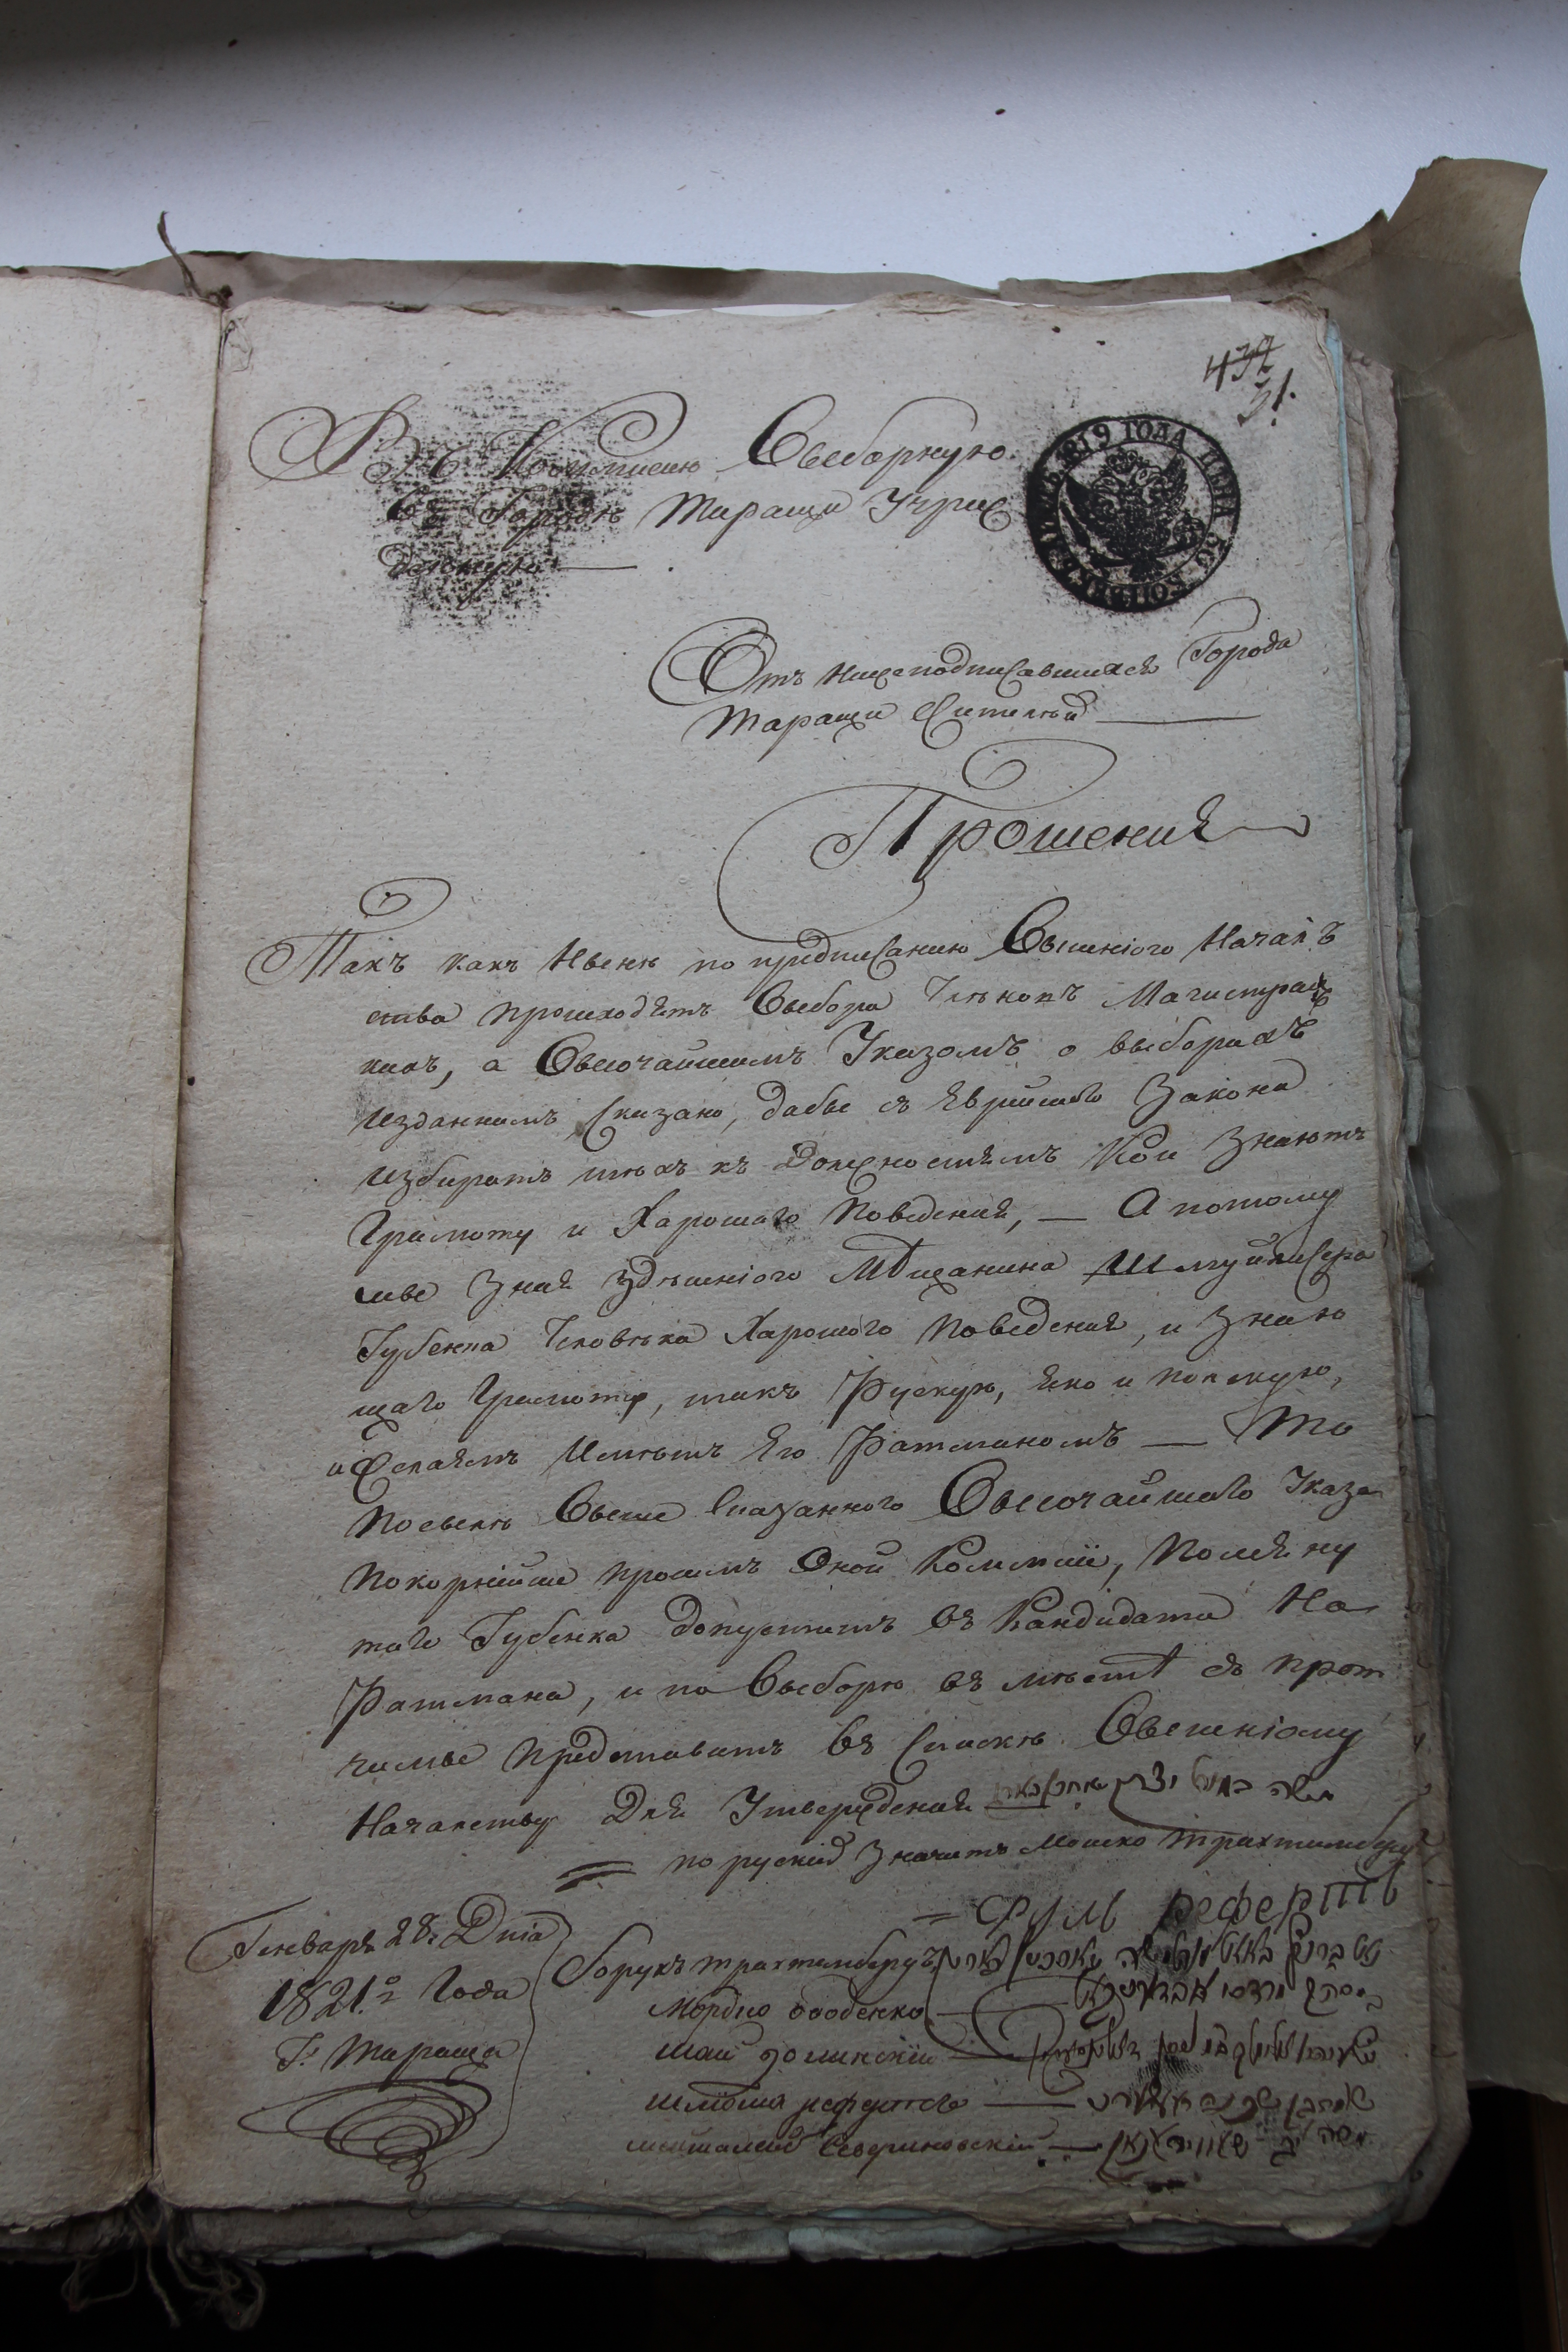 437
31.
Въ Коммисию Выборную
Въ Городѣ Тараще Учреж
денную
1819 ГОДА ЦѢНА 50 КОПѢЕКЪ
Отъ нижеподписавшихся Города
Таращи Жителей
Прошения
Такъ какъ Нынѣ по предписанию Вышнiого Началь
ства происходятъ Выбора Члѣновъ Магистрац
кихъ, а Высочайшимъ Указомъ о выборахъ
изданнымъ Сказано, дабы съ Еврийского Закона
избиратъ тѣхъ къ Должностямъ Кои Знаютъ
Грамоту и Харошаго Поведения, — А потому
мы Зная Здѣшнiого Мѣщанина Шмуйлисера
Губенка Чловѣка Харошого Поведения, и Знаю
щаго Грамоту, такъ Рускую, яко и Полскую,
и Желаемъ Имѣтъ Его Ратманомъ — То
Посылѣ Выше Сказанного Высочайшаго Указа
Покорнѣйше просимъ Оной Коммисiи, Помяну
таго Губенка Допуститъ въ Кандидата На
Ратмана, и по Выборѣ въ мѣстѣ съ прот
чимы Представитъ въ Спискѣ Вышнiому
Началству Для Утверждения משה
по руский Значитъ Мошко Трахтимберг
Генваря 28: Дня
1821.го Года
Г: Тараща
Борухъ трахтенбергъ
Мордко
Шмоша
Севериновский משה